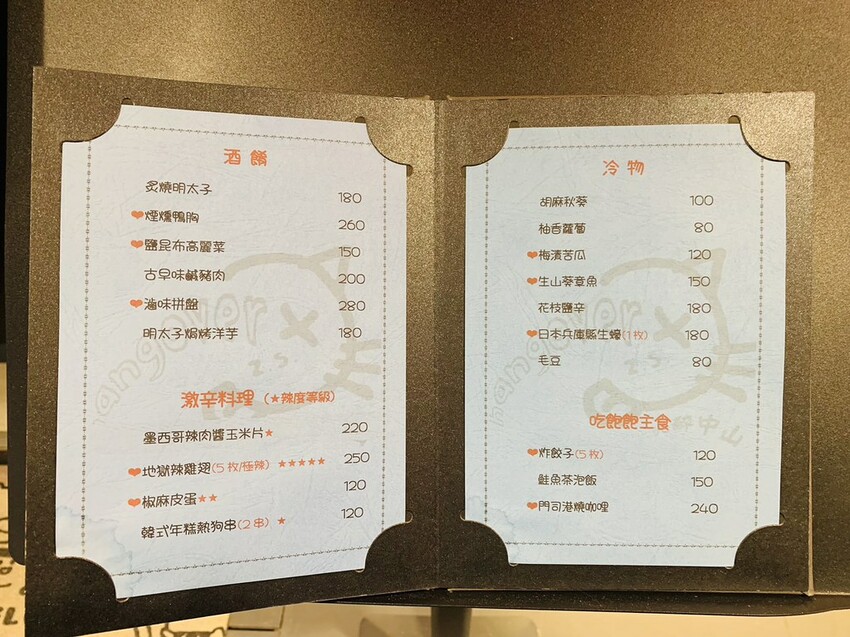 酒餚
炙燒明太子 180
❤煙燻鴨胸 260
❤鹽昆布高麗菜 150
古早味鹹豬肉 200
❤滷味拼盤 280
明太子焗烤洋芋 180
激辛料理 (★辣度等級)
墨西哥辣肉醬玉米片★ 220
❤地獄辣雞翅(5枚/極辣) ★★★★★ 250
❤椒麻皮蛋★★ 120
韓式年糕熱狗串(2串) ★ 120
hangover
冷物
胡麻秋葵 100
柚香蘿蔔 80
❤梅漬苦瓜 120
❤生山葵章魚 150
花枝鹽辛 180
❤日本兵庫縣生蠔(1枚) 180
毛豆 80
吃飽飽主食
❤炸餃子(5枚) 120
鮭魚茶泡飯 150
❤門司港燒咖哩 240
hangover
醉中山